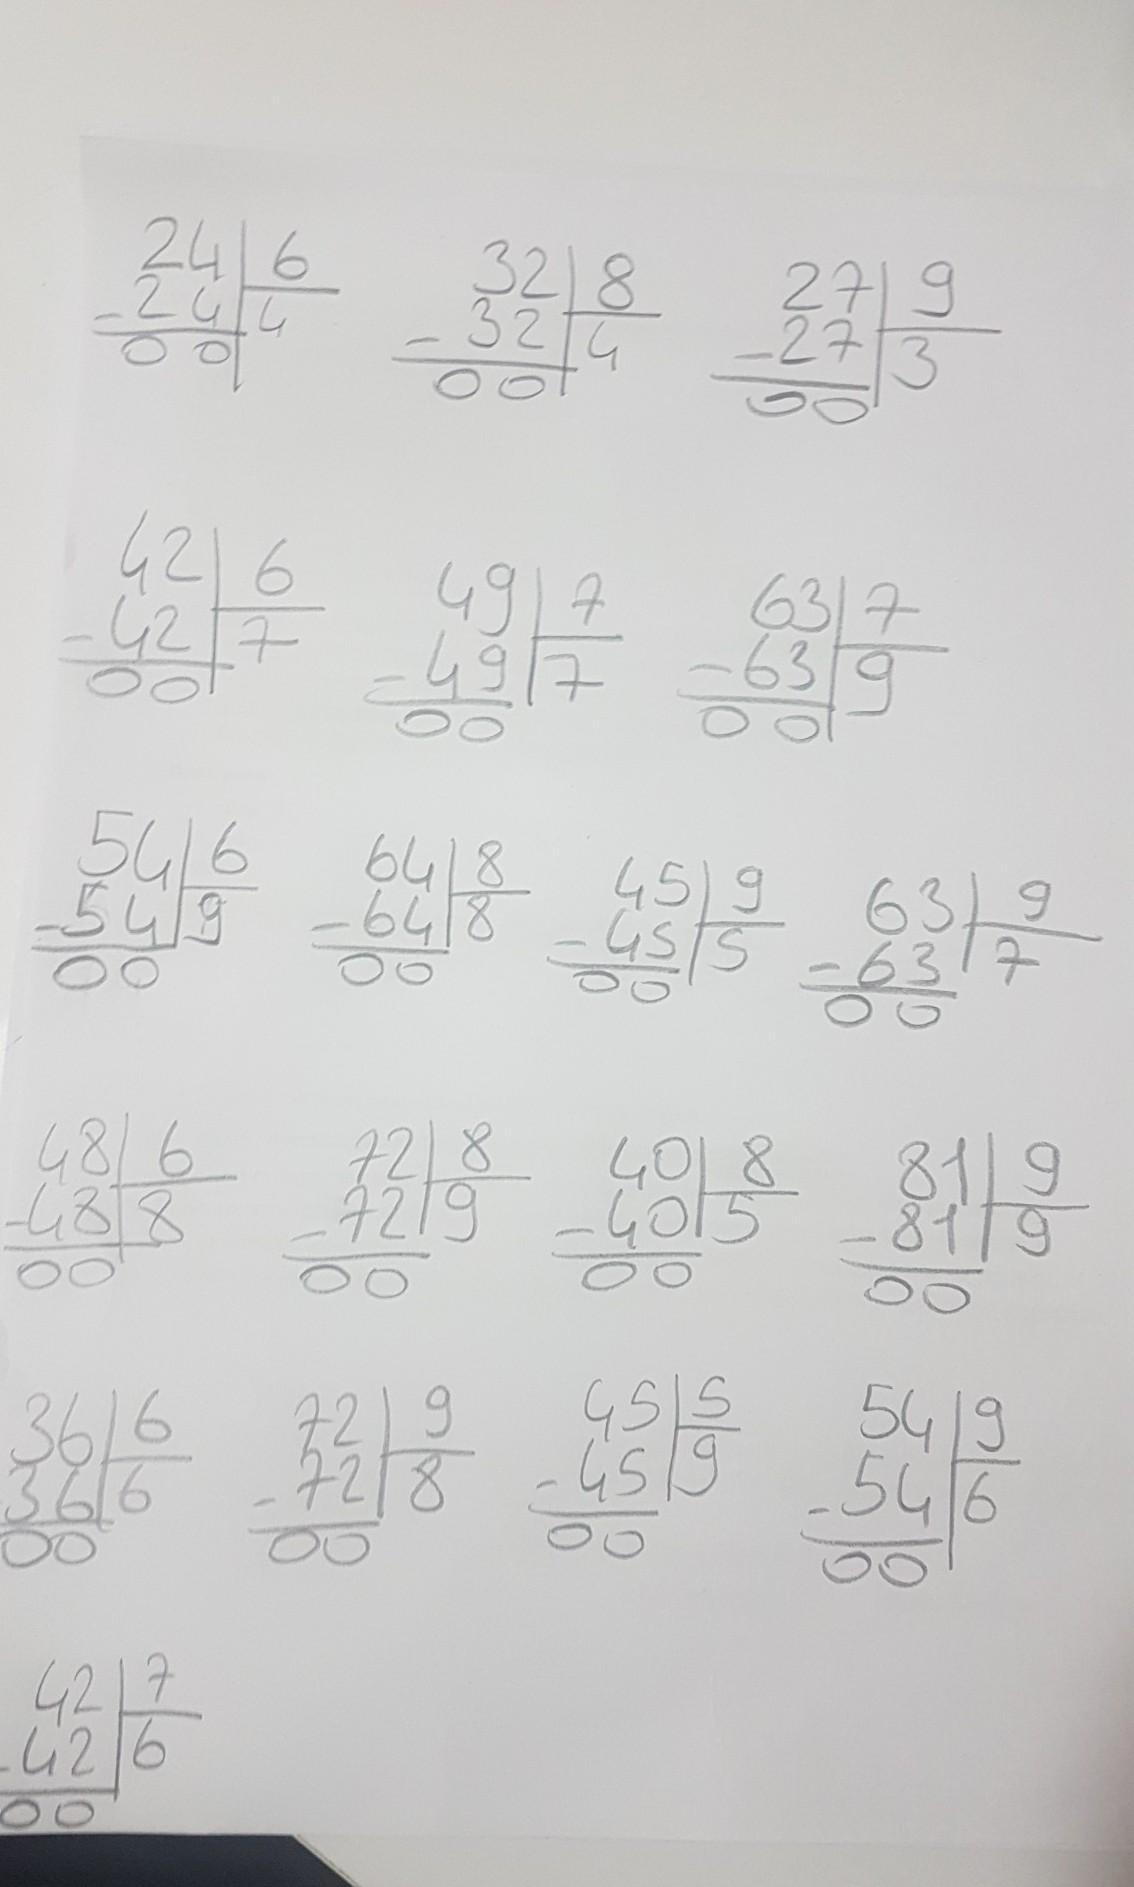 24 6 32 8 27 9
-24 4 -32 4 -27 3
00 00 00
42 6 49 7 63 7
-42 7 -49 7 -63 9
00 00 00
54 6 64 8 45 9 63 9
-54 9 -64 8 -45 5 -63 7
00 00 00 00
48 6 72 8 40 8 81 9
-48 8 -72 9 -40 5 -81 9
00 00 00 00
36 6 72 9 45 5 54 9
36 6 -72 8 -45 9 -54 6
00 00 00 00
42 7
-42 6
00